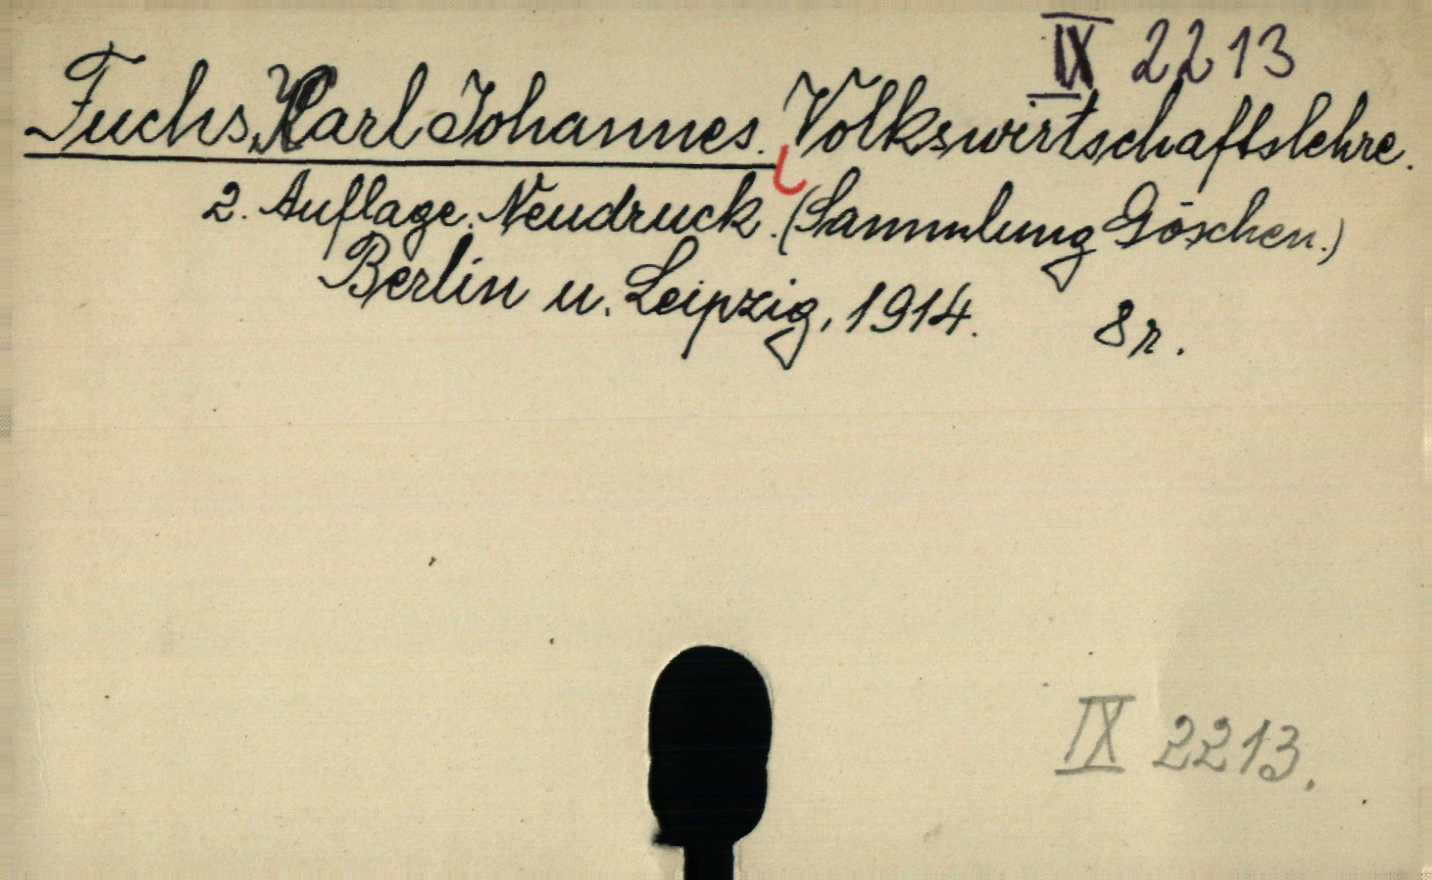 IX 2213
Fuchs, Karl Johannes. Volkswirtschaftslehre.
2. Auflage. Neudruck. (Sammlung Göschen.)
Berlin u. Leipzig, 1914. 8r.
IX 2213.